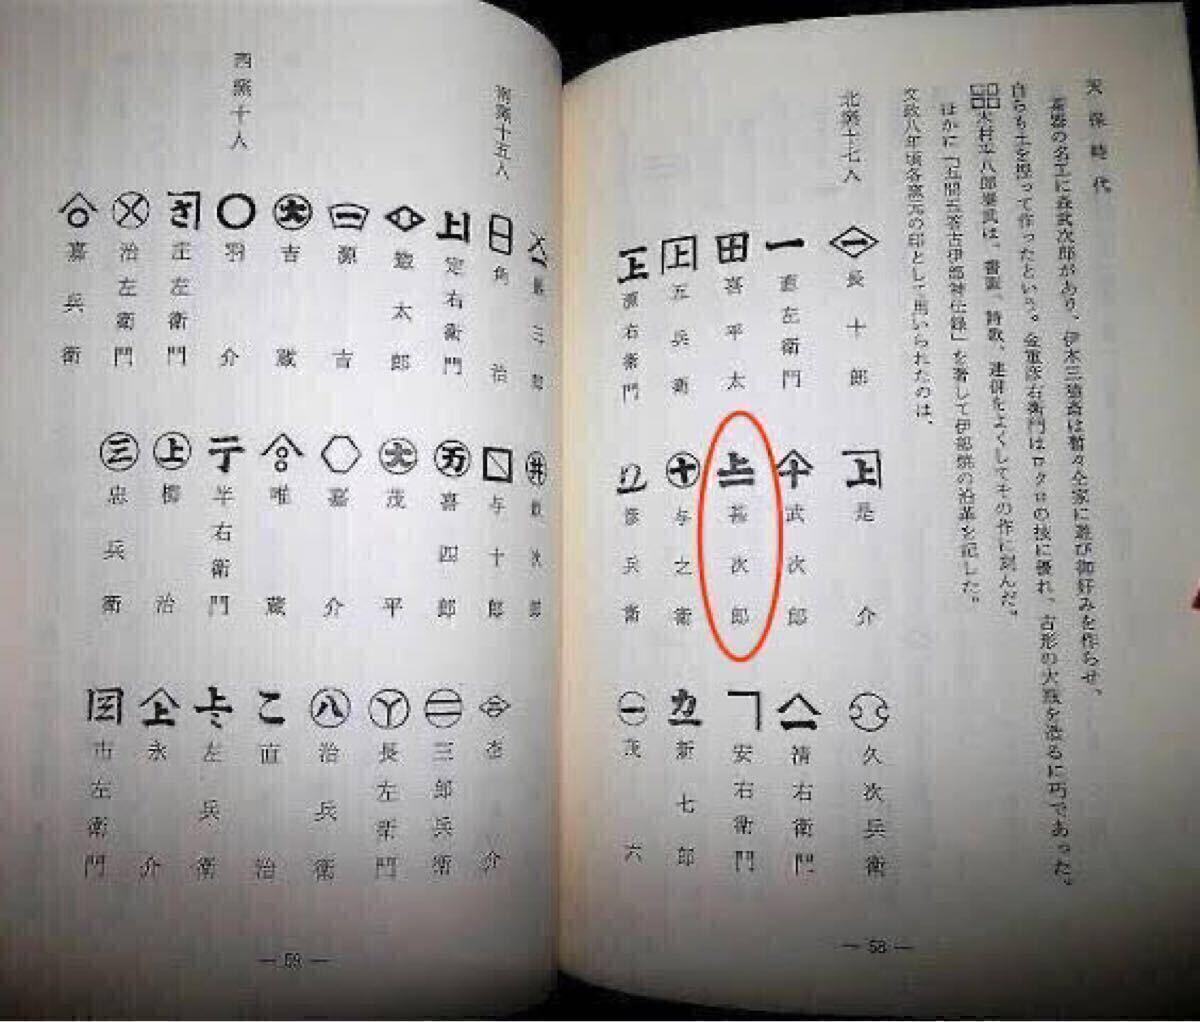 天保時代
茶器の名工に森武次郎があり、伊木三猿斎は暫々全家に遊び御好みを作らせ、
自らも土を捏って作ったという。金重彦右衛門はロクロの技に優れ、古形の大瓶を造るに巧であった。
大村平八郎豊武は、書画、詩歌、連俳をよくしてその作に刻んだ。
ほかに「五問五答古伊部神伝録」を著して伊部焼の沿革を記した。
文政八年頃各窯元の印として用いられたのは、
北窯十七人
長十郎
直左衛門
喜平太
五兵衛
源右衛門
是介
武次郎
甚次郎
与之衛
修兵衛
久次兵衛
清右衛門
安右衛門
新七郎
茂六
— 58 —
南窯十五人
三郎
角治
定右衛門
惣太郎
源吉
吉蔵
次郎
与十郎
喜四郎
茂平
嘉介
杢介
三郎兵衛
長左衛門
治兵衛
直治
西窯十人
羽介
庄左衛門
治左衛門
嘉兵衛
唯蔵
半右衛門
柳治
忠兵衛
左兵衛
永介
市左衛門
— 59 —